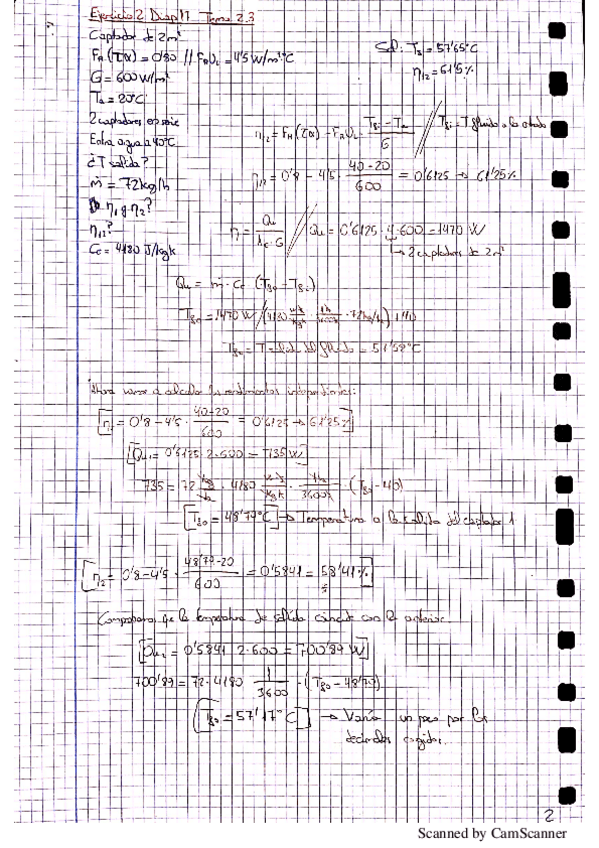 Ejercicio 2 Diap 17 Tema 2.3
Captador de 2m²
F_R(τα) = 0'80 // F_R U_L = 4'5 W/m²·°C
Sol: T_s = 57'65°C
η₁₂ = 61'5%
G = 600 W/m²
T_a = 20°C
2 captadores en serie
Entra agua a 40°C
¿T salida?
ṁ = 72 kg/h
η₁ y η₂?
η₁₂?
C_c = 4180 J/kg k
η₁₂ = F_R(τα) - F_R U_L · (T_fi - T_a)/G // T_fi = T fluido a la entrada
η₁₂ = 0'8 - 4'5 · (40-20)/600 = 0'6125 → 61'25%
η = Q_u/(A_c·G) // Q_u = 0'6125 · 4·600 = 1470 W
↳ 2 captadores de 2m²
Q_u = ṁ · C_c (T_fo - T_fi)
T_fo = 1470 W
Ahora vamos a calcular los rendimientos independientes:
η₁ = 0'8 - 4'5 · (40-20)/600 = 0'6125 → 61'25%
Q_u₁ = 0'6125 · 2 · 600 = 735 W
735 = 72 kg/h · 4180 w·s/kg k · 1h/3600s · (T_fo - 40)
T_fo = 48'79°C → Temperatura a la salida del captador 1
η₂ = 0'8 - 4'5 · (48'79-20)/600 = 0'5841 = 58'41%
Comprobamos que la temperatura de salida coincide con la anterior.
Q_u₂ = 0'5841 · 2 · 600 = 700'89 W
700'89 = 72 · 4180 · 1/3600 · (T_fo - 48'79)
T_fo = 57'17°C → Varía un poco por los
decimales cogidos.
2
Scanned by CamScanner